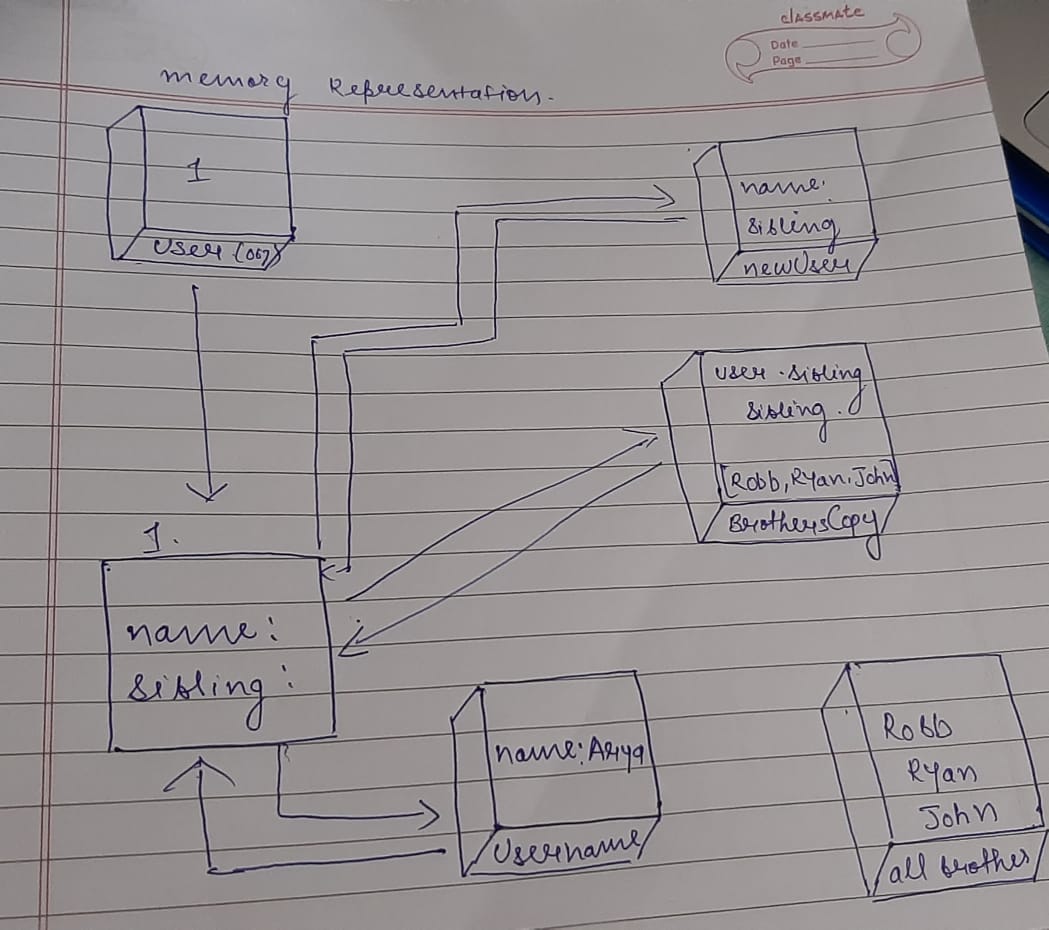 classmate
Date
Page
memory Representation.
1
User (obj)
name:
sibling
newUser
user.sibling
sibling.
[Robb, Ryan, John]
BrothersCopy
1.
name:
sibling:
name: Arya
Username
Robb
Ryan
John
all brother